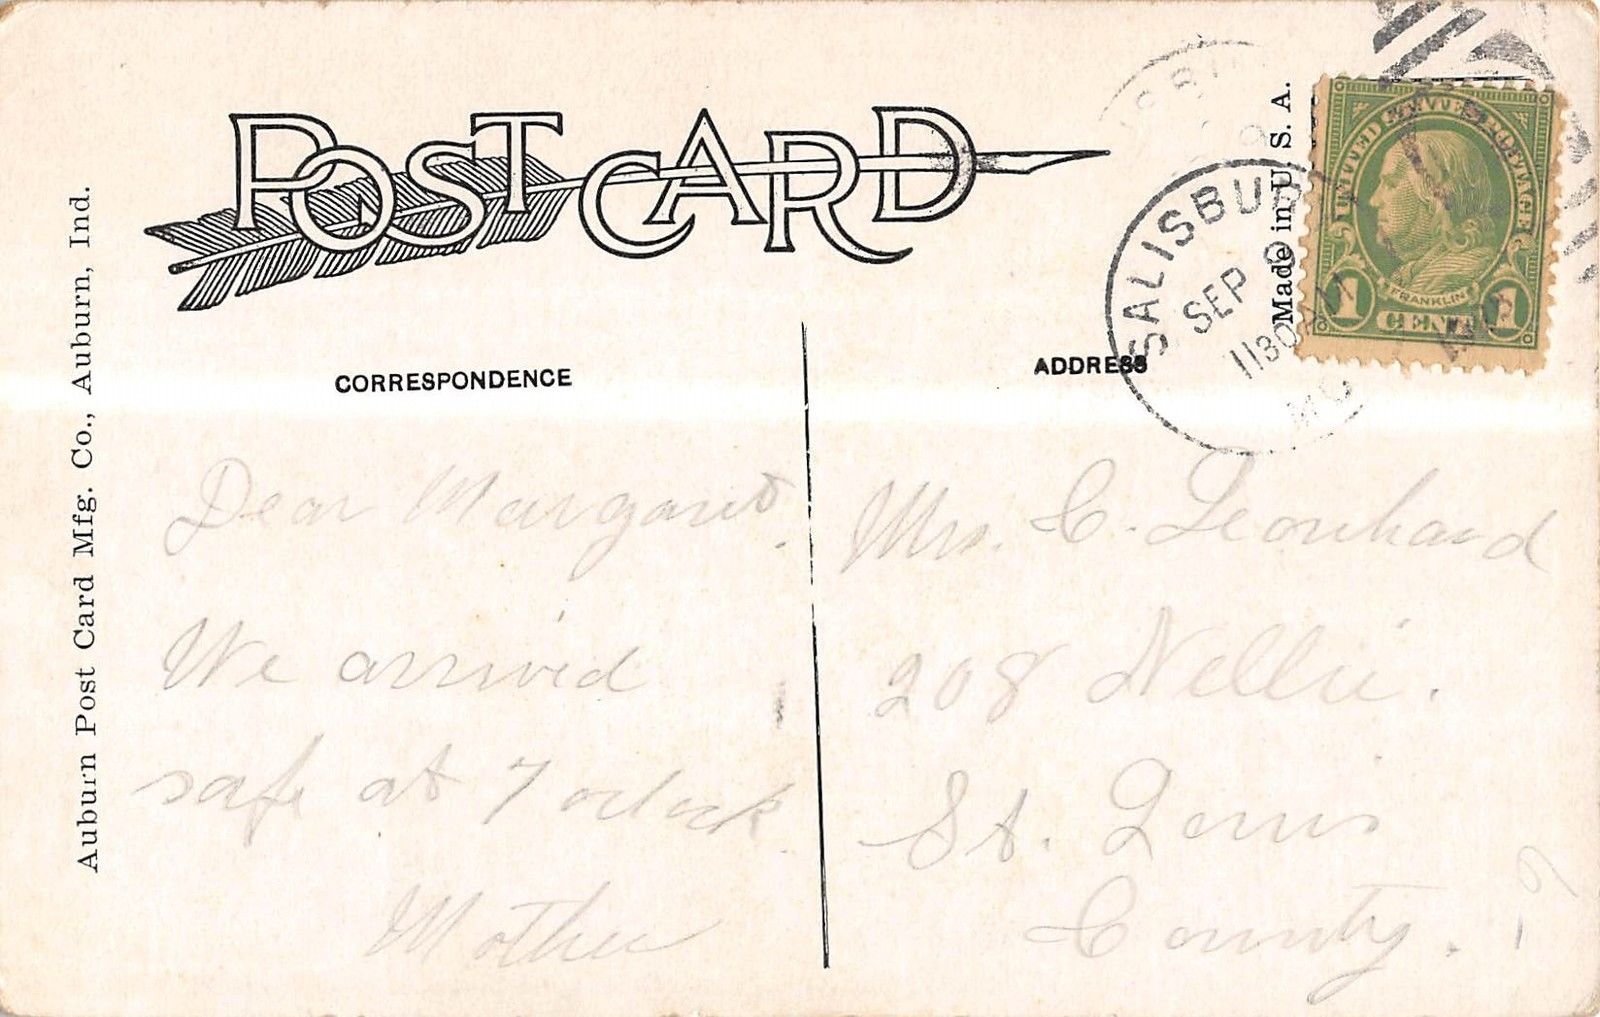 POST CARD
Made in U. S. A.
SALISBURY
SEP 9
1130 AM
MO
UNITED STATES POSTAGE
FRANKLIN
1 CENT 1
Auburn Post Card Mfg. Co., Auburn, Ind.
CORRESPONDENCE
Dear Margaret.
We arrived
safe at 7 oclock
Mother
ADDRESS
Mrs. C. Leonhard
208 Nellie.
St. Louis
County.